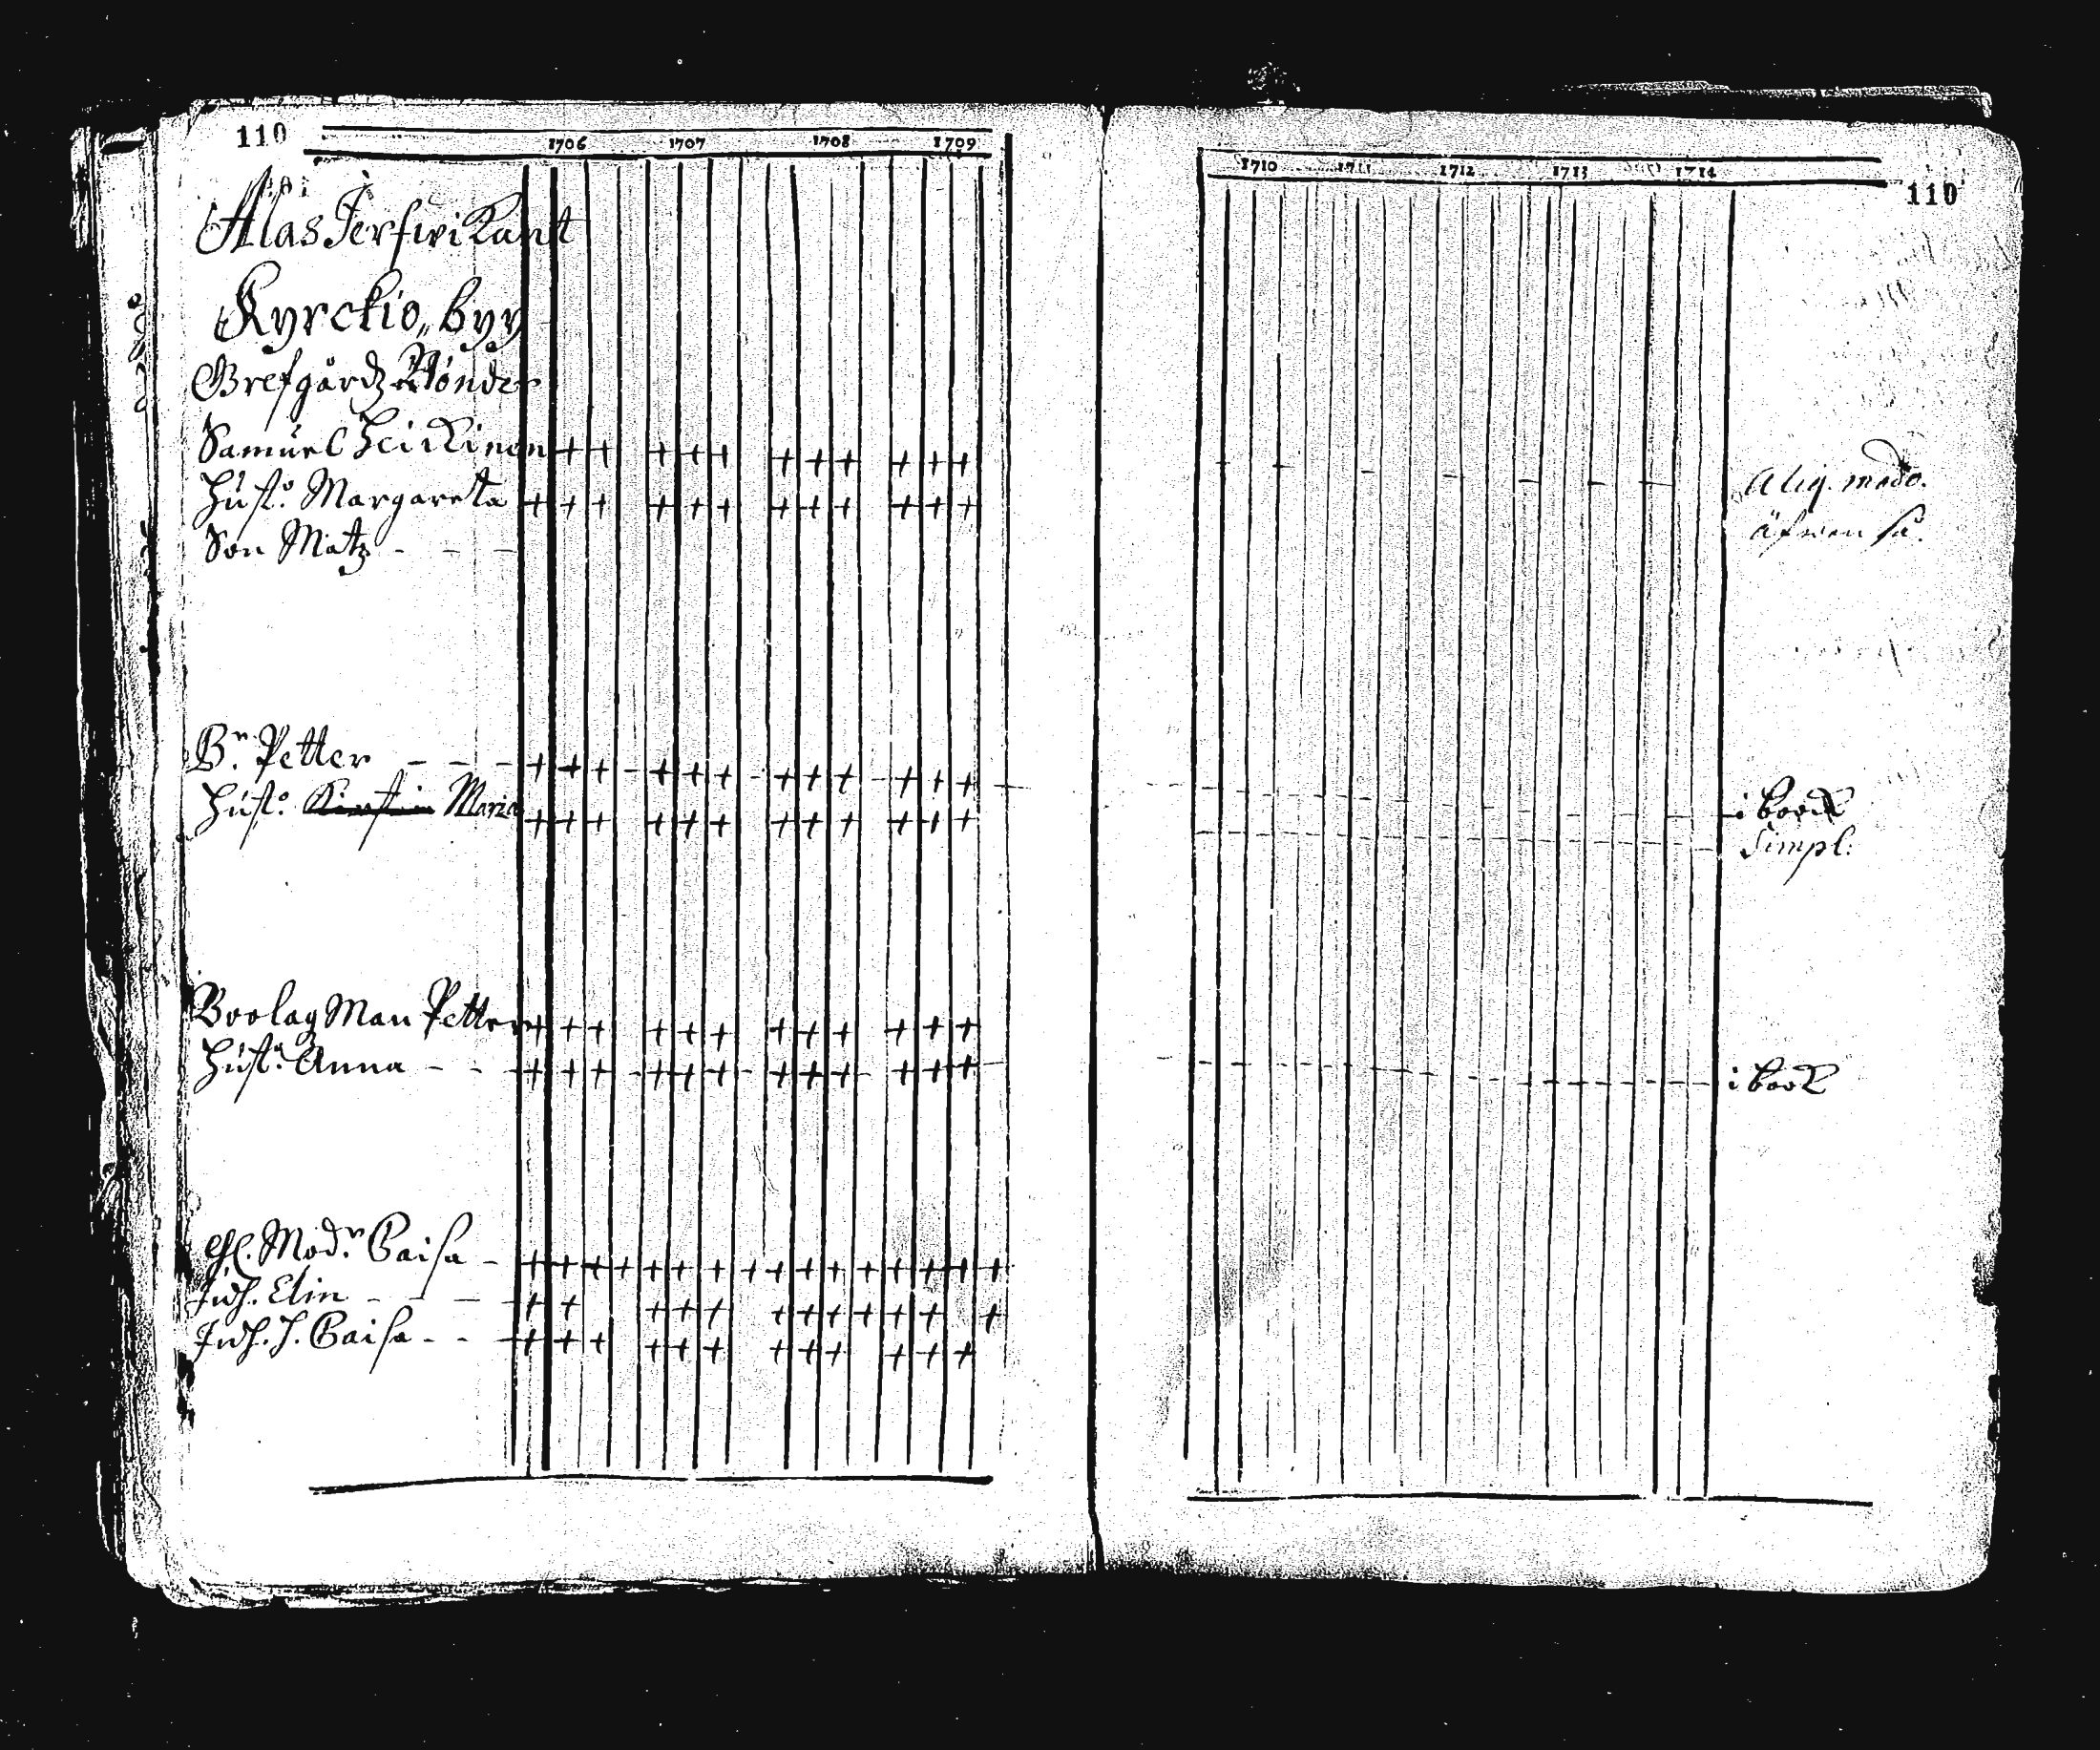 110
1706 1707 1708 1709
Alas Jerfwi Kant
Kyrckio„ byy
Brefgårdz Bönder
Samuel Heickinen
Hust.º Margareta
Son Matz - - -
B.r Petter - - -
Hust.º Kirstin Maria
Boolag Man Petter
Hust.º Anna - -
Gl. Mod.r Caisa -
Inh. Elin - - -
Inh. H. Caisa - -
1710 1711 1712 1713 1714
110
Aliq. modo.
äfwen så.
i book
Simpl:
i book